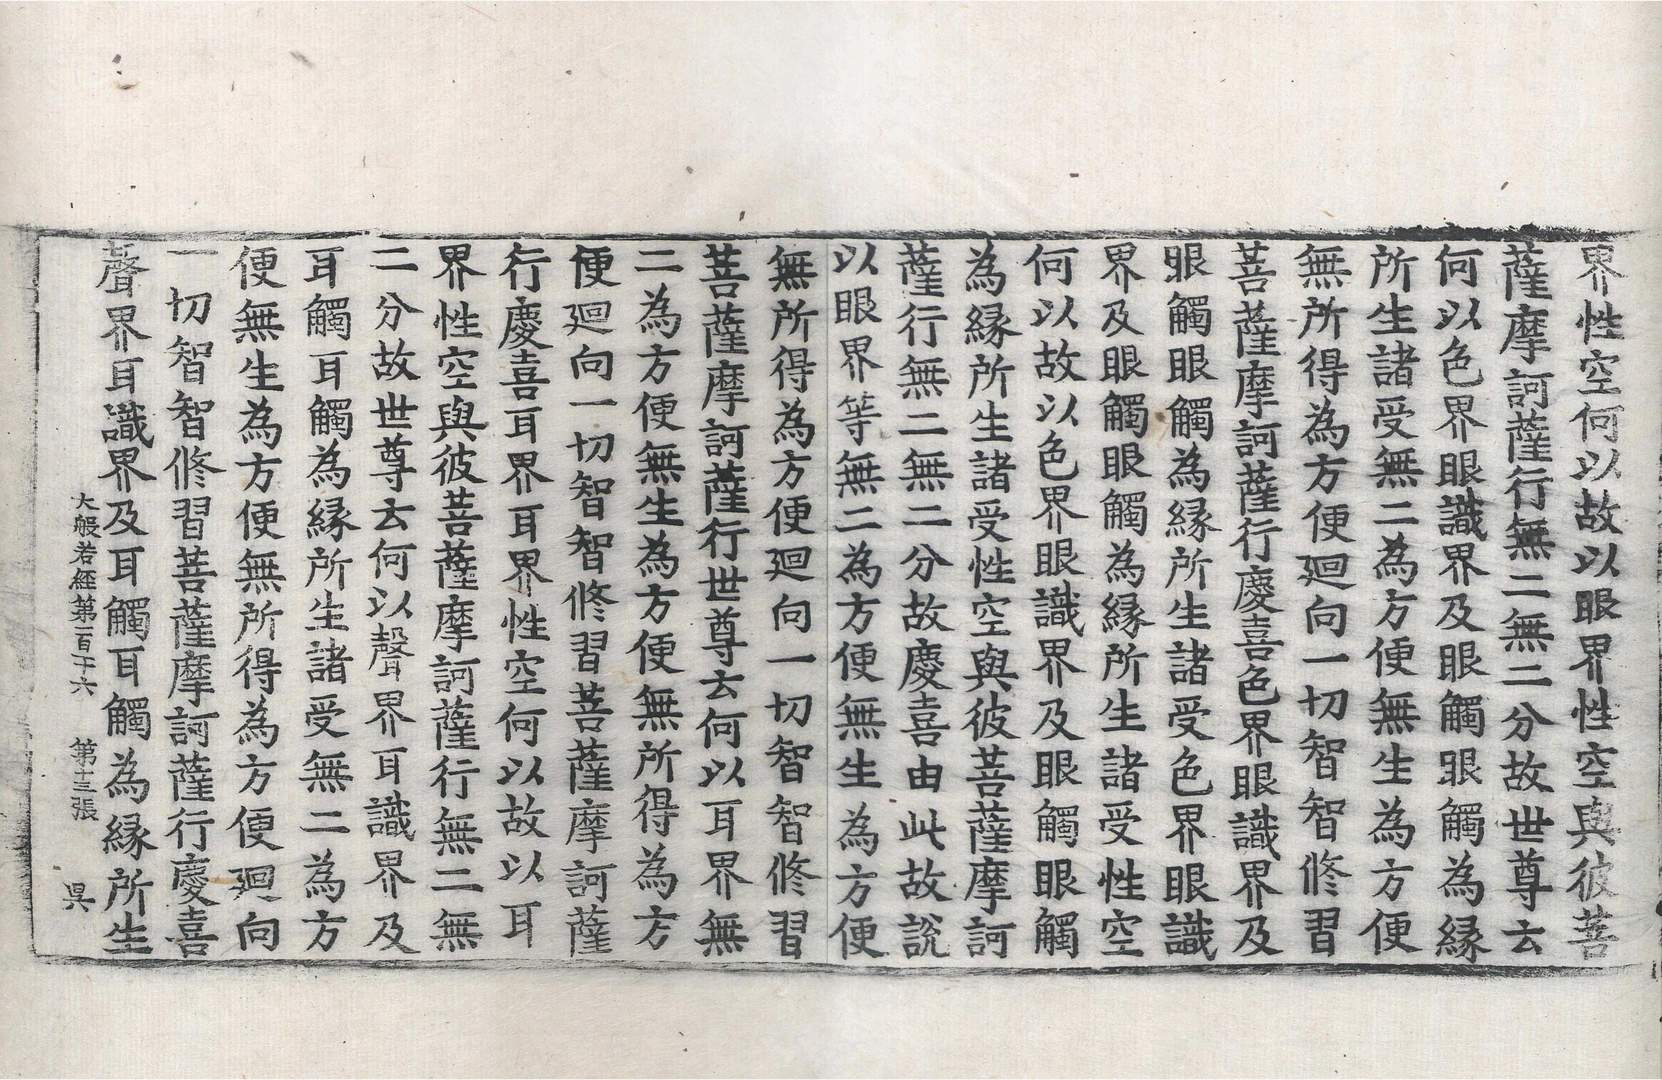 界性空何以故以眼界性空與彼菩
薩摩訶薩行無二無二分故世尊云
何以色界眼識界及眼觸眼觸為縁
所生諸受無二為方便無生為方便
無所得為方便廻向一切智智修習
菩薩摩訶薩行慶喜色界眼識界及
眼觸眼觸為縁所生諸受色界眼識
界及眼觸眼觸為縁所生諸受性空
何以故以色界眼識界及眼觸眼觸
為縁所生諸受性空與彼菩薩摩訶
薩行無二無二分故慶喜由此故說
以眼界等無二為方便無生為方便
無所得為方便廻向一切智智修習
菩薩摩訶薩行世尊云何以耳界無
二為方便無生為方便無所得為方
便廻向一切智智修習菩薩摩訶薩
行慶喜耳界耳界性空何以故以耳
界性空與彼菩薩摩訶薩行無二無
二分故世尊云何以聲界耳識界及
耳觸耳觸為縁所生諸受無二為方
便無生為方便無所得為方便廻向
一切智智修習菩薩摩訶薩行慶喜
聲界耳識界及耳觸耳觸為縁所生
大般若經第一百二十六 第十三張 昃